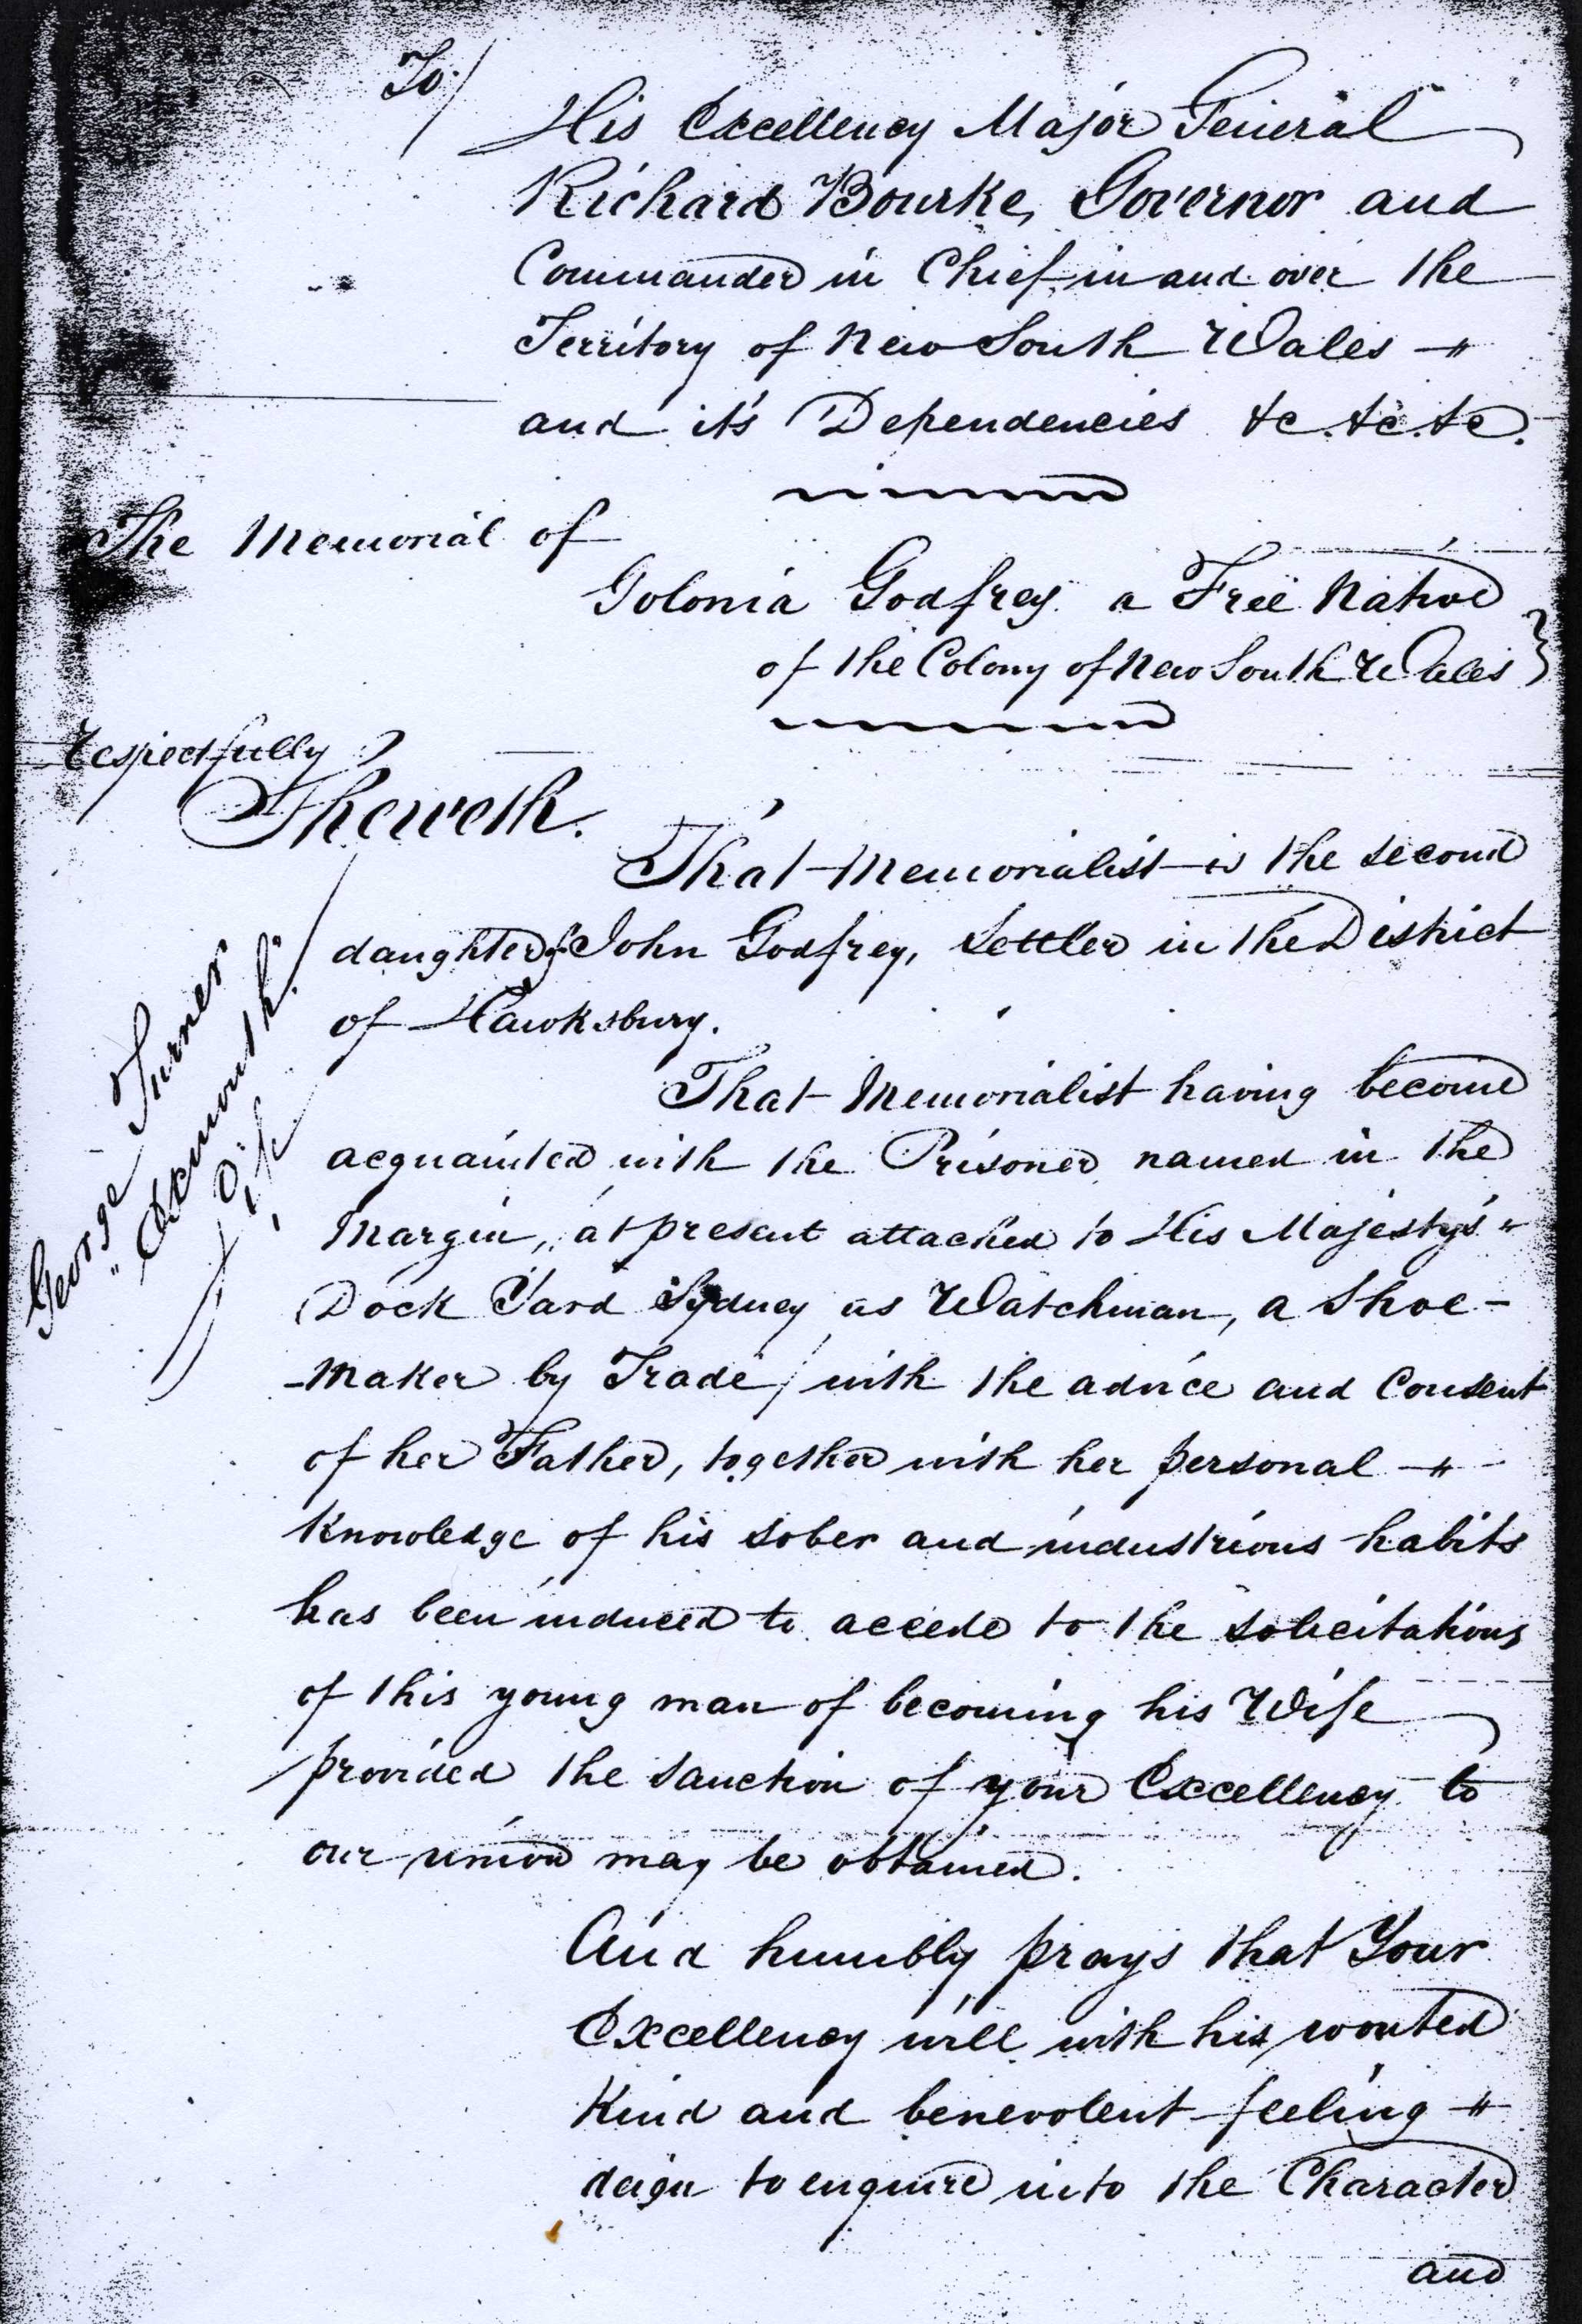 To/
His Excellency Major General
Richard Bourke, Governor and
Commander in Chief in and over the
Territory of New South Wales
and it's Dependencies &c. &c. &c.
The Memorial of
Golonia Godfrey a Free Native
of the Colony of New South Wales
respectfully
Sheweth.
That Memorialist is the second
daughter of John Godfrey, Settler in the District
of Hawksbury.
That Memorialist having become
acquainted with the Prisoner named in the
George Turner
"Exmouth"
Life
Margin, at present attached to His Majesty's
Dock Yard Sydney as Watchman, a Shoe-
-maker by Trade, with the advice and Consent
of her Father, together with her personal
Knowledge of his sober and industrious habits
has been induced to accede to the solicitations
of this young man of becoming his Wife
provided the sanction of your Excellency to
our union may be obtained.
And humbly prays that Your
Excellency will with his wonted
Kind and benevolent feeling
deign to enquire into the Character
and